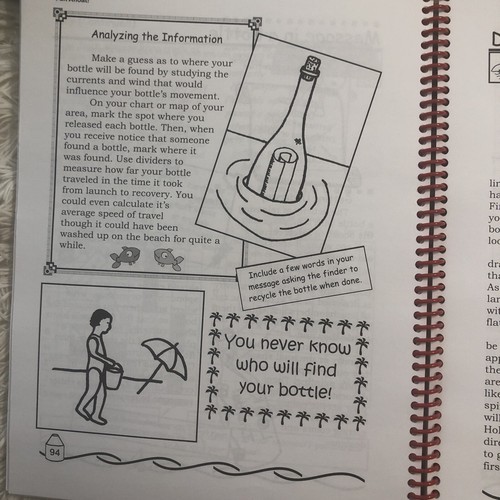 Analyzing the Information
Make a guess as to where your
bottle will be found by studying the
currents and wind that would
influence your bottle's movement.
On your chart or map of your
area, mark the spot where you
released each bottle. Then, when
you receive notice that someone
found a bottle, mark where it
was found. Use dividers to
measure how far your bottle
traveled in the time it took
from launch to recovery. You
could even calculate it's
average speed of travel
though it could have been
washed up on the beach for quite a
while.
Include a few words in your
message asking the finder to
recycle the bottle when done.
You never know
who will find
your bottle!
94